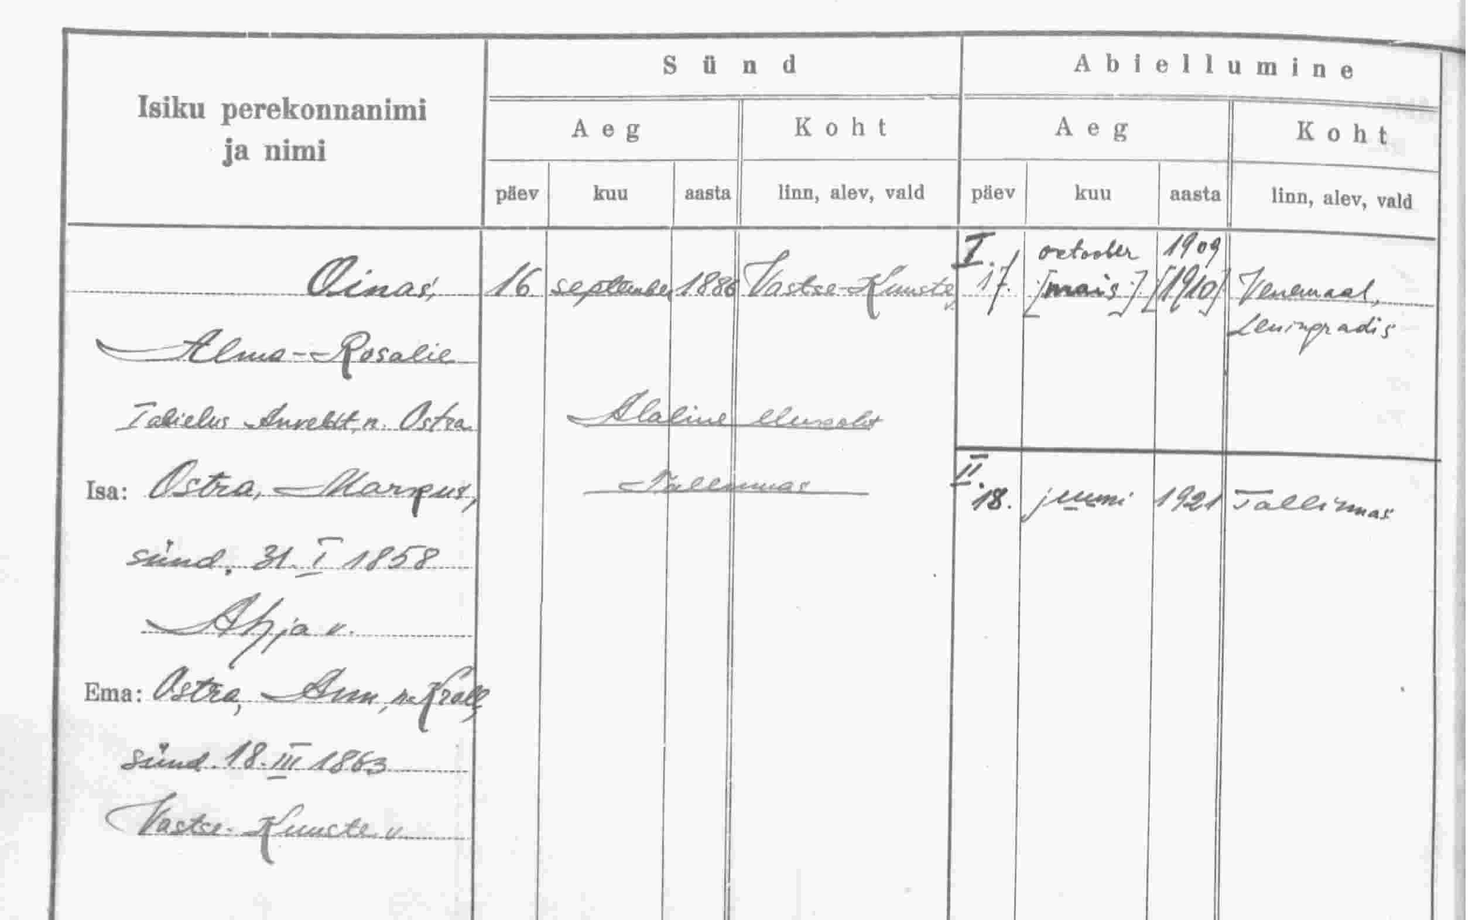 Isiku perekonnanimi
ja nimi
Sünd
Aeg
Koht
päev kuu aasta linn, alev, vald
Abiellumine
Aeg
Koht
päev kuu aasta linn, alev, vald
Oinas,
Alma-Rosalie
n. Ostra
Isa: Ostra, Markus,
sünd. 31. I 1858
Ahja v.
Ema: Ostra, Ann, n. Kroll,
sünd. 18. III 1863
Vastse-Kuuste v.
16 september 1886 Vastse-Kuuste v.
Alaline elukoht
Tallinnas
I. october 1909
17. [mais] [1910] Venemaal,
Leningradis
II.
18. juuni 1921 Tallinnas